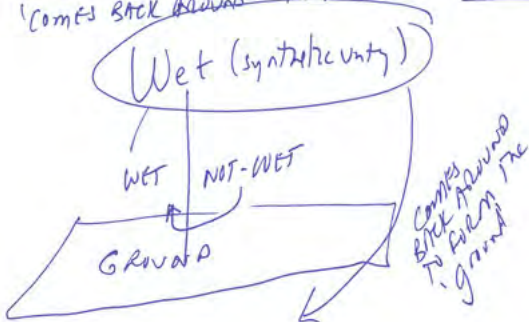 'COMES BACK AROUND
Wet (synthetic unity)
WET NOT-WET
GROUND
COMES
BACK AROUND
TO FORM THE
'ground'